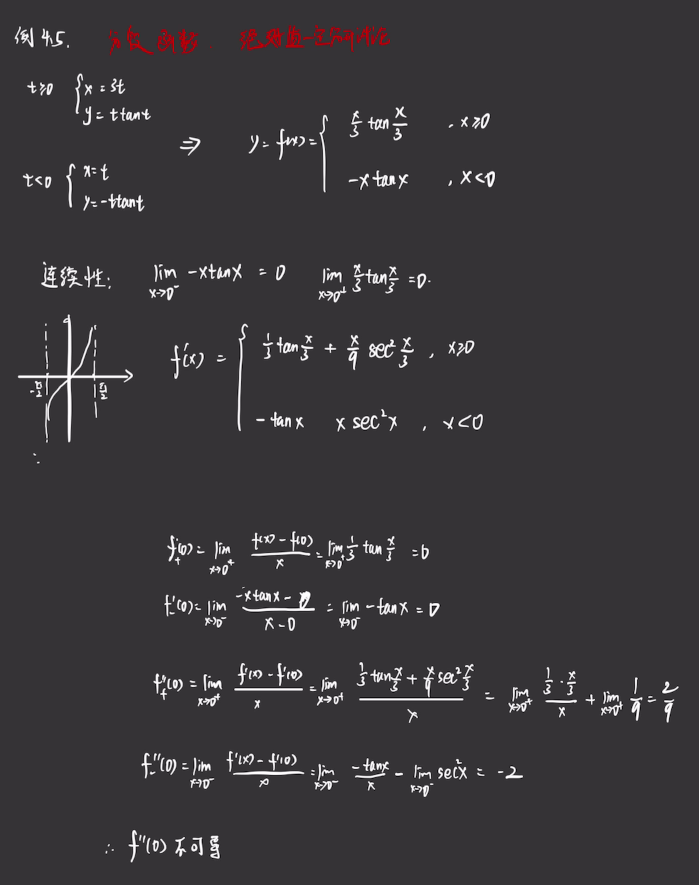 例4.5. 参数函数. 绝对值一定分开讨论
t≥0 { x = 3t
y = t tant
⇒ y = f(x) = { x/3 tan x/3 , x≥0
-x tanx , x<0
t<0 { x=t
y=-ttant
连续性: lim x→0⁻ -xtanx = 0 lim x→0⁺ x/3 tan x/3 =0.
f'(x) = { 1/3 tan x/3 + x/9 sec² x/3 , x≥0
- tanx x sec²x , x<0
-π/2 π/2
∴
f'₊(0) = lim x→0⁺ f(x)-f(0)/x = lim x→0⁺ 1/3 tan x/3 = 0
f'₋(0) = lim x→0⁻ -xtanx - 0/x-0 = lim x→0⁻ -tanx = 0
f''₊(0) = lim x→0⁺ f'(x)-f'(0)/x = lim x→0⁺ 1/3 tan x/3 + x/9 sec² x/3 / x = lim x→0⁺ 1/3 · x/3 / x + lim x→0⁺ 1/9 = 2/9
f''₋(0) = lim x→0⁻ f'(x)-f'(0)/x = lim x→0⁻ -tanx/x - lim x→0⁻ sec²x = -2
∴ f''(0) 不可导